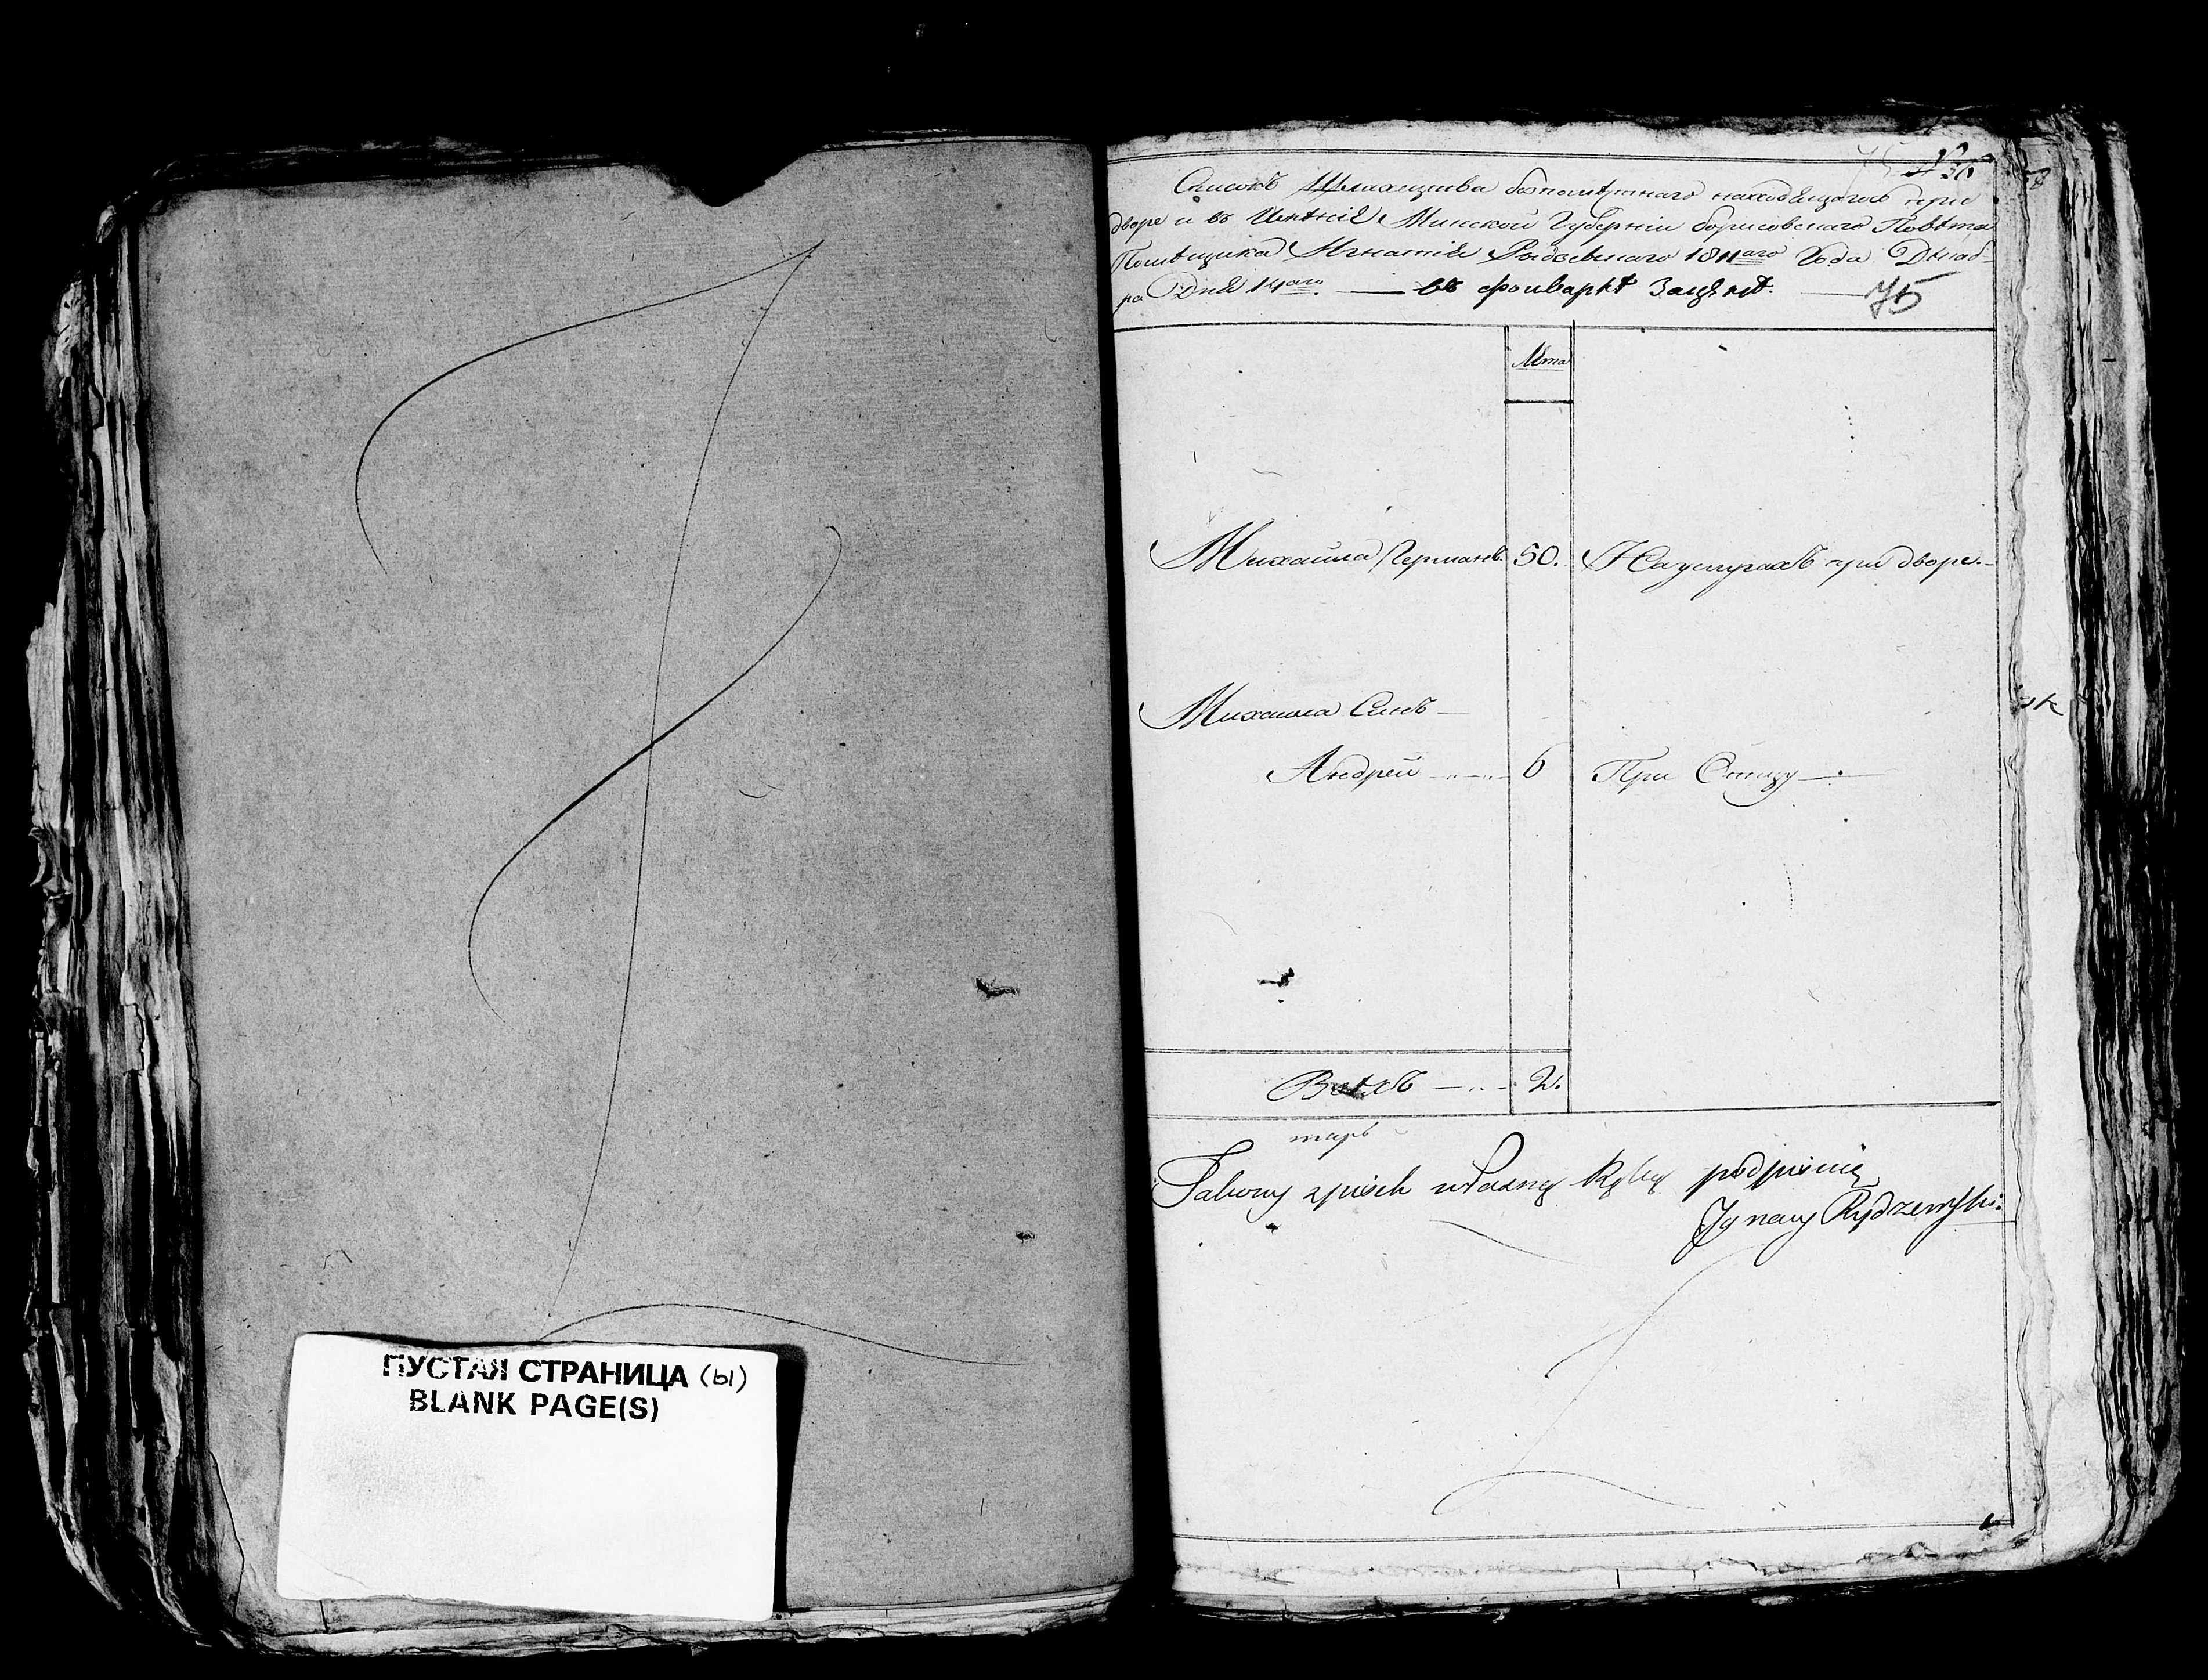 ПУСТАЯ СТРАНИЦА (ы)
BLANK PAGE(S)
Списокъ Шляхецтва безпоместнаго находящагось при
дворе и въ Именіе Минской Губерніи борисовскаго Повѣта
Помѣщика Игнатія 1811аго Года Декаб-
ра Дня 14аго. — въ фольваркѣ
75
Лѣта
Михайла Германъ. 50. На услугахъ при дворе.
Михаила Сынъ —
Андрей 6 При Отцу
Всѣхъ 2.
Takowy spisek własną ręką podpisuię
Ignacy Rydzewski